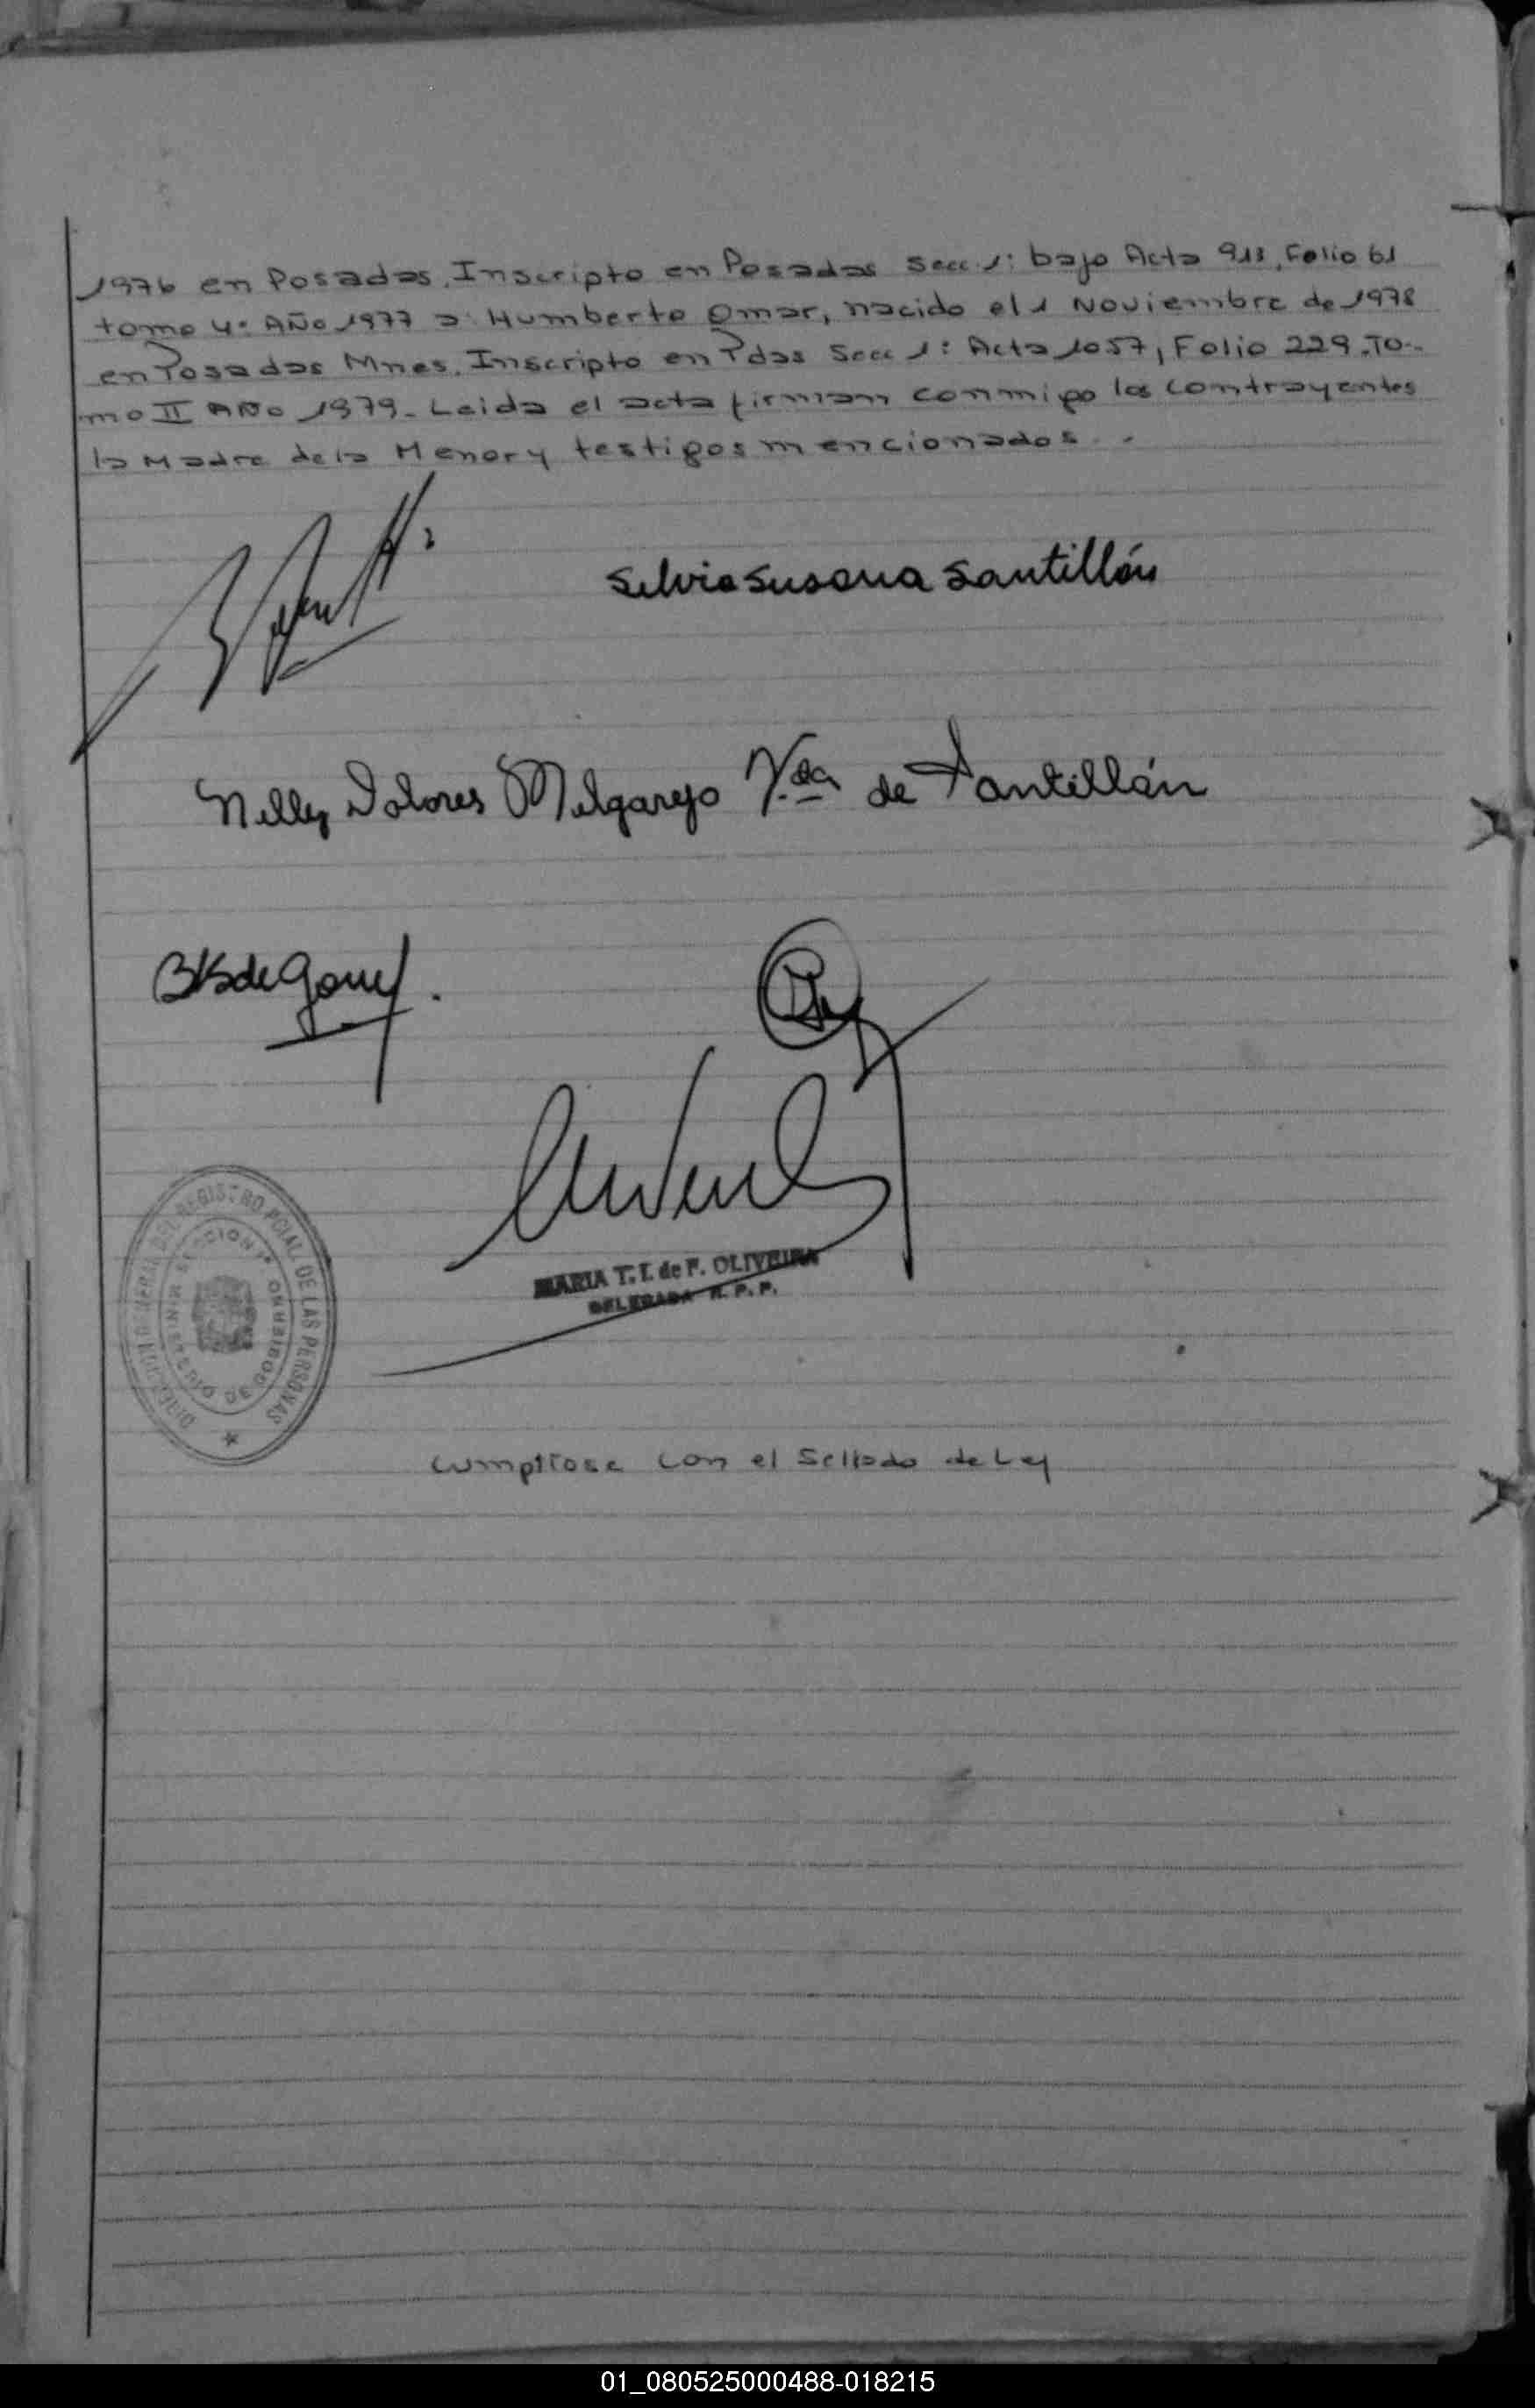 1976 en Posadas. Inscripto en Posadas Secc. 1: bajo Acta 913, Folio 61
tomo 4: Año 1977 a: Humberto Omar, nacido el 1 Noviembre de 1978
en Posadas Mnes. Inscripto en Pdas Secc 1: Acta 1057, Folio 229. To-
mo II Año 1979. Leida el acta firman conmigo los contrayentes
la Madre de la Menor y testigos mencionados. -
Silvia Susana Santillán
Nelly Dolores Melgarejo Vda de Santillán
MARIA T. I. de F. OLIVEIRA
DELEGADA R. P. P.
DIRECCION GENERAL DEL REGISTRO PCIAL. DE LAS PERSONAS
MINISTERIO DE GOBIERNO
SECCION 1ª
Cumplióse con el Sellado de Ley
01_080525000488-018215